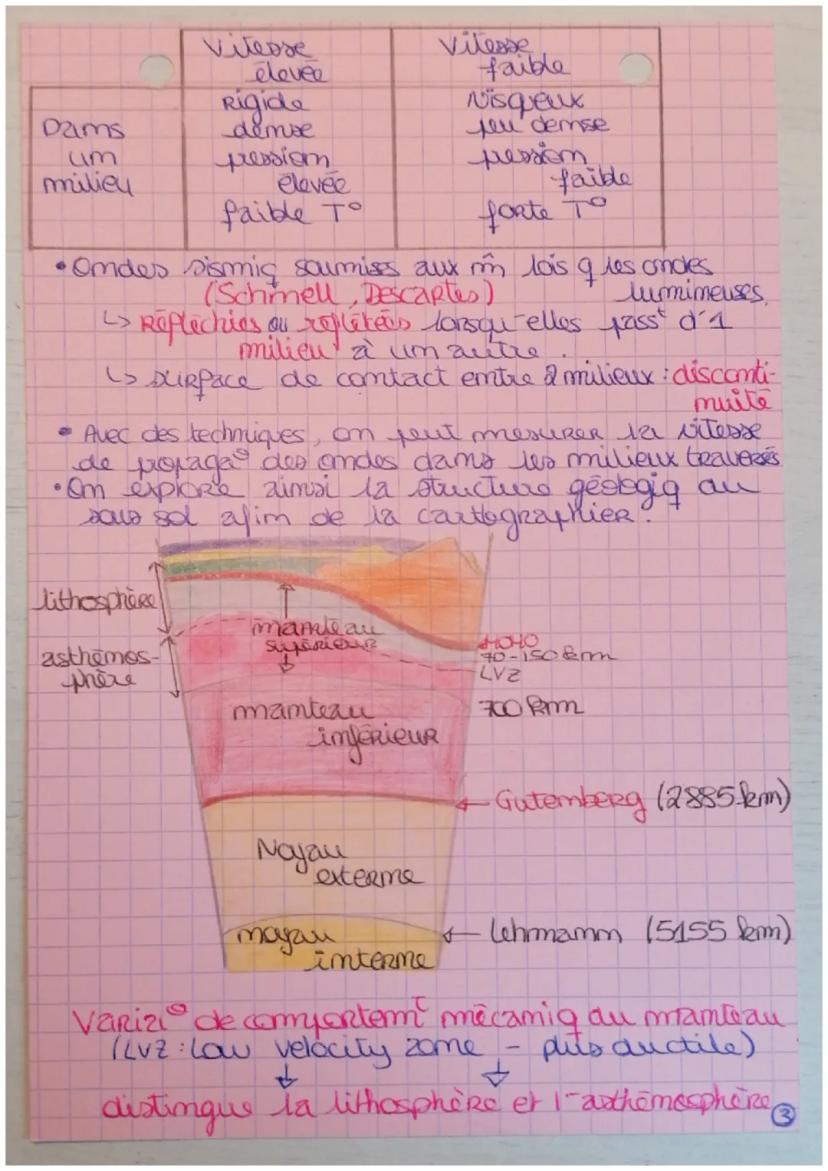 Vitesse élevée
Vitesse faible
Dans un milieu
Rigide
dense
pression élevée
faible T°
Visqueux
peu dense
pression faible
forte T°
• Ondes sismiq soumises aux m̂ lois q les ondes
(Schnell, Descartes) lumineuses.
↳ Réfléchies ou réfletées lorsqu'elles passᵗ d'1
milieu à un autre.
↳ surface de contact entre 2 milieux : disconti-
nuité
• Avec des techniques, on peut mesurer la vitesse
de propagaᵒ des ondes dans les milieux traversés
• On explore ainsi la structure géologiq du
sous sol afin de la cartographier.
lithosphère
manteau
supérieur
MOHO
70-150 km
LVZ
asthénos-
phère
700 km
manteau
inférieur
← Gutemberg (2885 km)
Noyau
externe
← Lehrmann (5155 km)
noyau
interne
Variziᵒ de comportemᵗ mécaniq du manteau
(LVZ : Low velocity zone - plus ductile)
distingue la lithosphère et l'asthénosphère
3